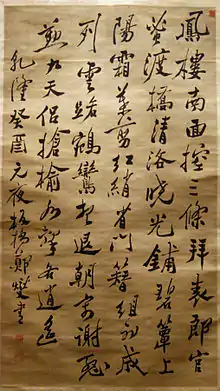 鳳樓南面控三條拜表郎官
蚤渡橋清洛曉光鋪碧簟上
陽霜葉剪紅綃省門簪組初成
列雲路鵷鸞想退朝寄謝慇
懃九天侶搶榆水擊各逍遙
乾隆癸酉元夜板橋鄭燮書